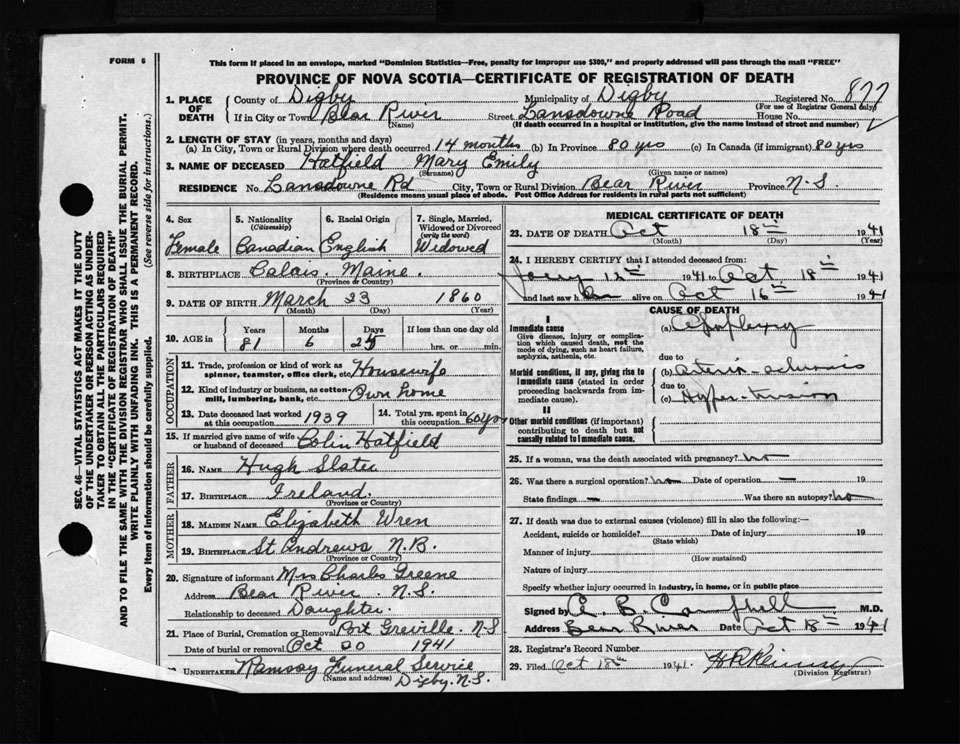 FORM 6
This form if placed in an envelope, marked "Dominion Statistics—Free, penalty for improper use $300," and properly addressed will pass through the mail "FREE"
PROVINCE OF NOVA SCOTIA—CERTIFICATE OF REGISTRATION OF DEATH
1. PLACE OF DEATH County of Digby Municipality of Digby Registered No. 877
(For use of Registrar General only)
If in City or Town Bear River Street Lansdowne Road House No.
(Name) (If death occurred in a hospital or institution, give the name instead of street and number)
2. LENGTH OF STAY (in years, months and days)
(a) In City, Town or Rural Division where death occurred 14 months (b) In Province 80 yrs (c) In Canada (if immigrant) 80 yrs
3. NAME OF DECEASED Hatfield Mary Emily
(Surname) (Given name or names)
RESIDENCE No. Lansdowne Rd City, Town or Rural Division Bear River Province N.S.
(Residence means usual place of abode. Post Office Address for residents in rural parts not sufficient)
4. Sex Female
5. Nationality (Citizenship) Canadian
6. Racial Origin English
7. Single, Married, Widowed or Divorced (write the word) Widowed
8. BIRTHPLACE Calais. Maine.
(Province or Country)
9. DATE OF BIRTH March 23 1860
(Month) (Day) (Year)
10. AGE in Years 81 Months 6 Days 25 If less than one day old hrs. or min.
OCCUPATION
11. Trade, profession or kind of work as spinner, teamster, office clerk, etc. Housewife
12. Kind of industry or business, as cotton-mill, lumbering, bank, etc. Own home
13. Date deceased last worked at this occupation 1939
14. Total yrs. spent in this occupation 60 yrs
15. If married give name of wife or husband of deceased Colin Hatfield
FATHER
16. NAME Hugh Slater
17. BIRTHPLACE Ireland.
(Province or Country)
MOTHER
18. MAIDEN NAME Elizabeth Wren
19. BIRTHPLACE St Andrews N.B.
(Province or Country)
20. Signature of informant Mrs Charles Greene
Address Bear River. N.S.
Relationship to deceased Daughter.
21. Place of Burial, Cremation or Removal Port Greville. N.S
Date of burial or removal Oct 20 1941
UNDERTAKER Ramsay Funeral Service
(Name and address) Digby. N.S.
MEDICAL CERTIFICATE OF DEATH
23. DATE OF DEATH Oct 18th 1941
(Month) (Day) (Year)
24. I HEREBY CERTIFY that I attended deceased from:
12th 1941 to Oct 18th 1941
and last saw h alive on Oct 16th 1941
CAUSE OF DEATH
I
Immediate cause
Give disease, injury or complication which caused death, not the mode of dying, such as heart failure, asphyxia, asthenia, etc.
(a) Apoplexy
due to
Morbid conditions, if any, giving rise to immediate cause (stated in order proceeding backwards from immediate cause).
(b) arterio-sclerosis
due to
(c) Hyper-tension
II
Other morbid conditions (if important) contributing to death but not causally related to immediate cause.
25. If a woman, was the death associated with pregnancy? no
26. Was there a surgical operation? no Date of operation —
State findings — Was there an autopsy? no
27. If death was due to external causes (violence) fill in also the following:—
Accident, suicide or homicide? Date of injury 19
(State which)
Manner of injury
(How sustained)
Nature of injury
Specify whether injury occurred in industry, in home, or in public place
Signed by A. B. Campbell M.D.
Address Bear River Date Oct 18th 1941
28. Registrar's Record Number
29. Filed Oct 18th 1941.
(Division Registrar)
SEC. 46—VITAL STATISTICS ACT MAKES IT THE DUTY
OF THE UNDERTAKER OR PERSON ACTING AS UNDER-
TAKER TO OBTAIN ALL THE PARTICULARS REQUIRED
IN THE "CERTIFICATE OF REGISTRATION OF DEATH"
AND TO FILE THE SAME WITH THE DIVISION REGISTRAR WHO SHALL ISSUE THE BURIAL PERMIT.
WRITE PLAINLY WITH UNFADING INK. THIS IS A PERMANENT RECORD.
Every item of information should be carefully supplied. (See reverse side for instructions.)